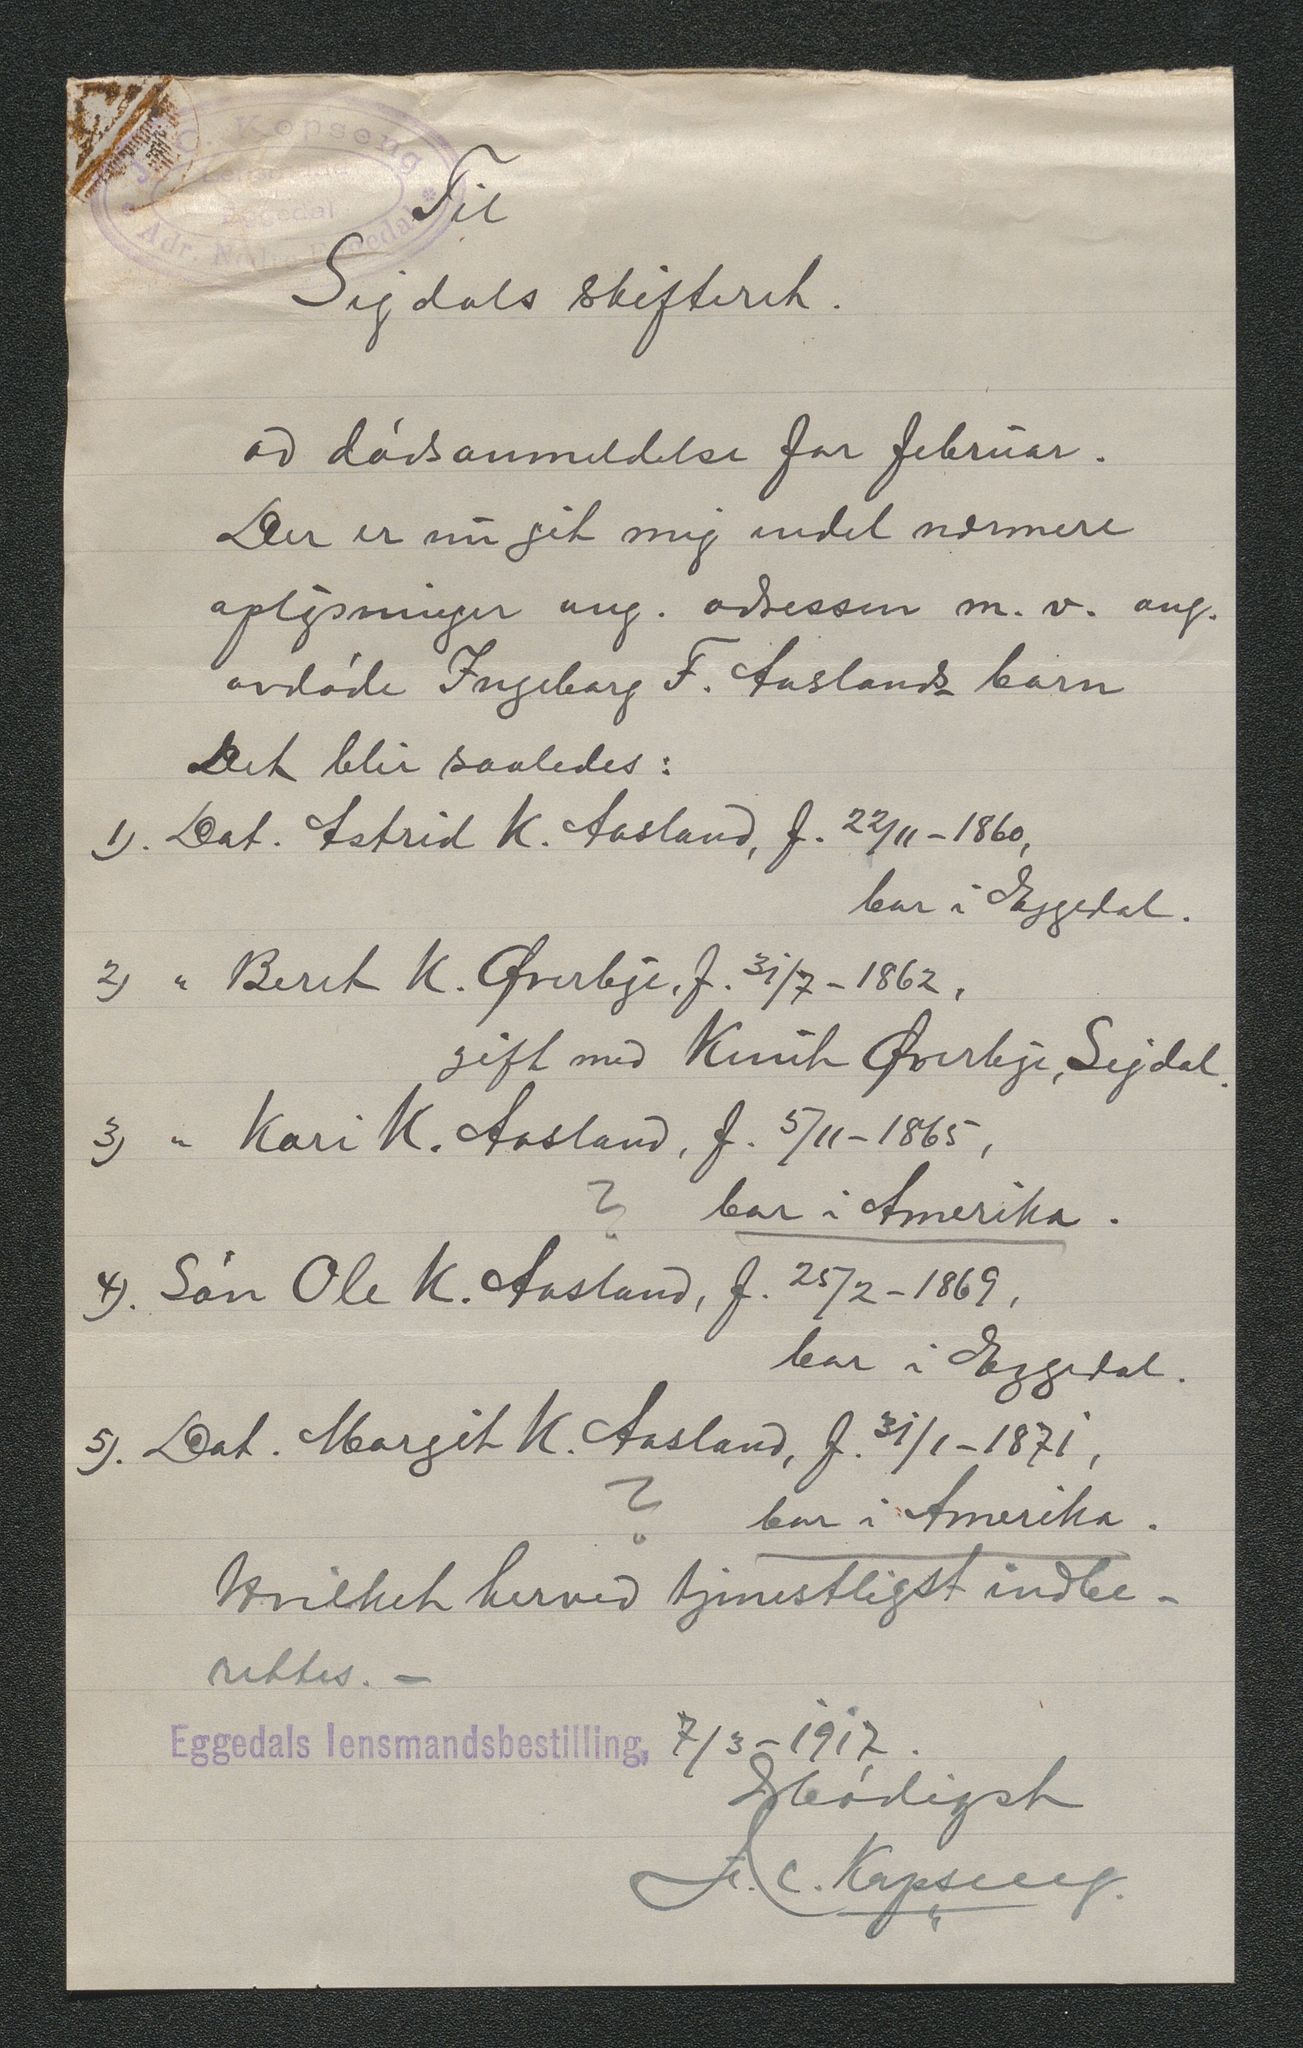 J. C. Kopseng
Lensmand
Eggedal
Adr. Nedre Eggedal
Til
Sigdals skifteret.
ad dødsanmeldelse for februar.
Der er nu git mig endel nærmere
oplysninger ang. adressen m. v. ang.
avdøde Ingeborg F. Aaslands barn
Det blir saaledes:
1). Dat. Astrid K. Aasland, f. 22/11 - 1860,
bor i Eggedal.
2) " Beret K. Øverbye, f. 31/7 - 1862,
gift med Knut Øverbye, Sigdal.
3) " Kari K. Aasland, f. 5/11 - 1865,
? bor i Amerika.
4). Søn Ole K. Aasland, f. 25/2 - 1869,
bor i Eggedal.
5). Dat. Margit K. Aasland, f. 31/1 - 1871,
? bor i Amerika.
Hvilket herved tjenestligst indbe-
rettes. -
Eggedals lensmandsbestilling, 7/3 - 1917.
Ærbødigst
J. C. Kopseng.